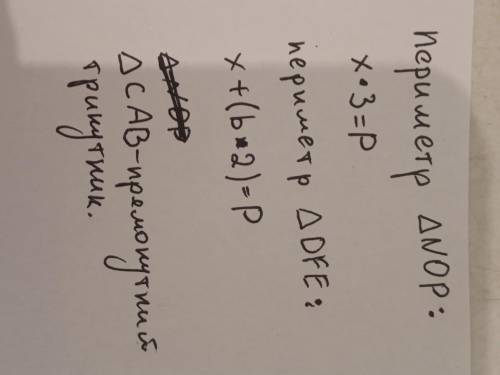 Периметр ΔNOP:
x・3=P
периметр ΔDFE:
x+(b*2)=P
ΔNOP
ΔCAB-прямокутний
трикутник.